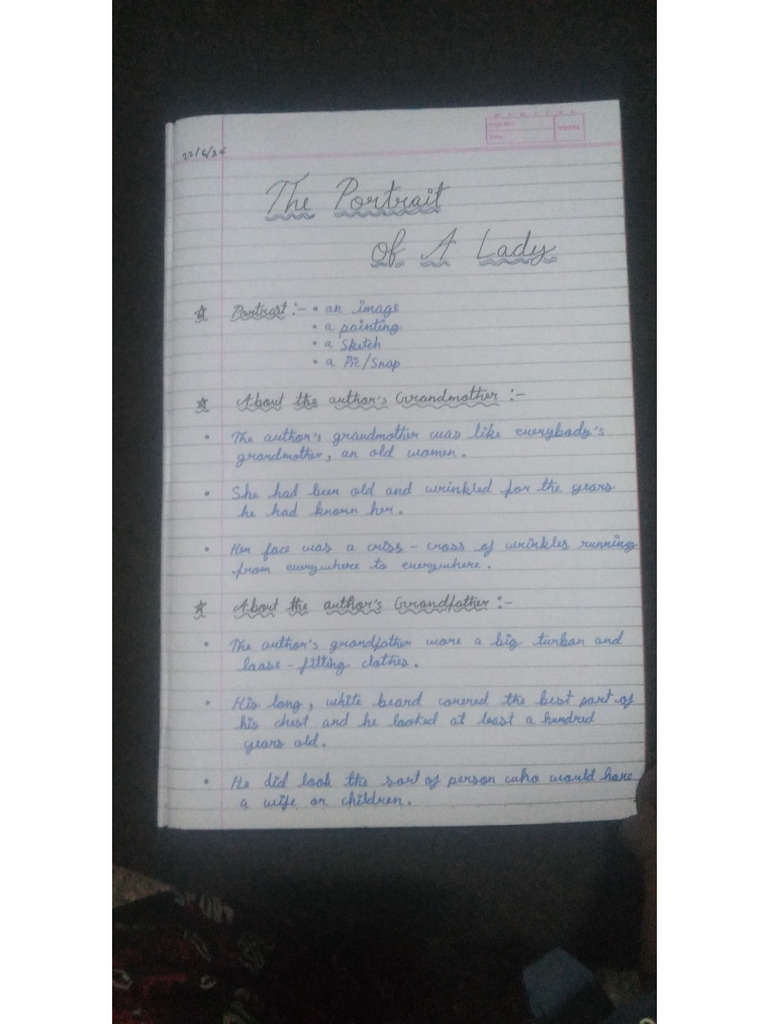 22/6/26
The Portrait
of A Lady
☆ Portrait :- • an image
• a painting
• a Sketch
• a Pic/Snap
☆ About the author's Grandmother :-
• The author's grandmother was like everybody's
grandmother, an old women.
• She had been old and wrinkled for the years
he had known her.
• Her face was a criss-cross of wrinkles running
from everywhere to everywhere.
☆ About the author's Grandfather :-
• The author's grandfather wore a big turban and
loose-fitting clothes.
• His long, white beard covered the best part of
his chest and he looked at least a hundred
years old.
• He did look the sort of person who would have
a wife or children.